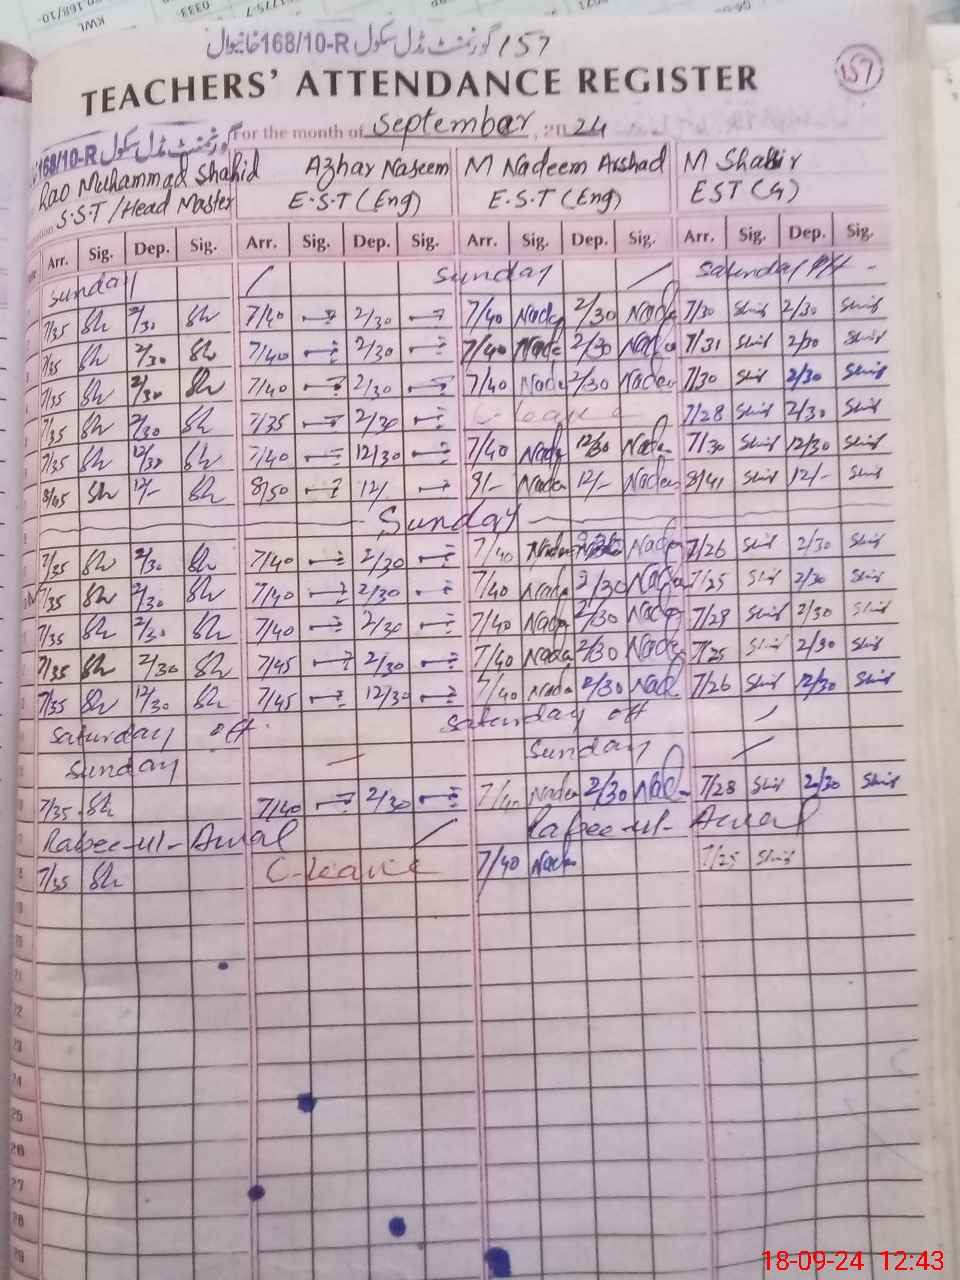 گورنمنٹ مڈل سکول 168/10-R خانیوال 157
TEACHERS' ATTENDANCE REGISTER
157
168/10-R گورنمنٹ مڈل سکول
For the month of September, 2024
Rao Muhammad Shahid Azhar Naseem M Nadeem Arshad M Shabir
S.S.T/Head Master E.S.T (Eng) E.S.T (Eng) EST (G)
Arr. Sig. Dep. Sig. Arr. Sig. Dep. Sig. Arr. Sig. Dep. Sig. Arr. Sig. Dep. Sig.
Sunday / Sunday / Saturday off -
7/35 Sh 2/30 Sh 7/40 2/30 7/40 Nade 2/30 Nade 7/30 Shid 2/30 Shid
7/35 Sh 2/30 Sh 7/40 2/30 7/40 Nade 2/30 Nade 7/31 Shid 2/30 Shid
7/35 Sh 2/30 Sh 7/40 2/30 7/40 Nade 2/30 Nadee 7/30 Shid 2/30 Shid
7/35 Sh 2/30 Sh 7/35 2/30 C-leave 7/28 Shid 2/30 Shid
7/35 Sh 12/30 Sh 7/40 12/30 7/40 Nade 12/30 Nade 7/30 Shid 12/30 Shid
8/45 Sh 12/- Sh 8/50 12/ 9/- Nade 12/- Nadee 8/41 Shid 12/- Shid
Sunday
7/35 Sh 2/30 Sh 7/40 2/30 7/40 Nade Nade 7/26 Shid 2/30 Shid
7/35 Sh 2/30 Sh 7/40 2/30 7/40 Nade 2/30 Nade 7/25 Shid 2/30 Shid
7/35 Sh 2/30 Sh 7/40 2/30 7/40 Nade 2/30 Nade 7/28 Shid 2/30 Shid
7/35 Sh 2/30 Sh 7/45 2/30 7/40 Nade 2/30 Nade 7/25 Shid 2/30 Shid
7/35 Sh 12/30 Sh 7/45 12/30 7/40 Nade 2/30 Nad 7/26 Shid 12/30 Shid
Saturday off Saturday off /
Sunday Sunday /
7/35 Sh 7/40 2/30 7/40 Nade 2/30 Nade 7/28 Shid 2/30 Shid
Rabee-ul-Awal / Rabee-ul-Awal
7/35 Sh C-Leave 7/40 Nade 7/25 Shid
22
23
24
25
26
27
28
29
18-09-24 12:43